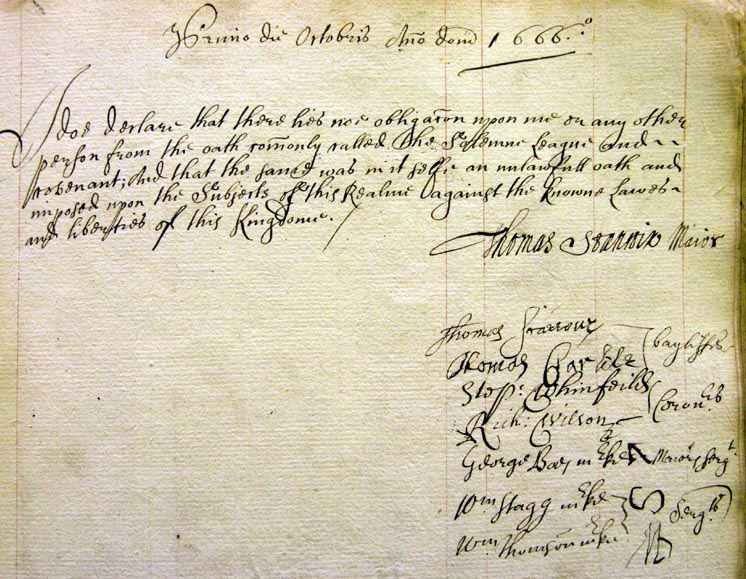 Primo die Octobris Año dom̃ 1666.º
I doe declare that there lies noe obligac̃on upon me or any other
person from the oath com̃only called The Solemne League and
Covenant; And that the same was in it selfe an unlawfull oath and
imposed upon the Subjects of this Realme against the knowne Lawes
and liberties of this Kingdome.
Thomas Stanwix Maior
Thomas
Thomas Bayliffes
Stepͬ: Whinfeild
Rich: Wilson Coronͬs
George mͬke Maiorͬs Sergͭ
Wm Stagg mͬke
Wm Thomson mͬke Sergͭs